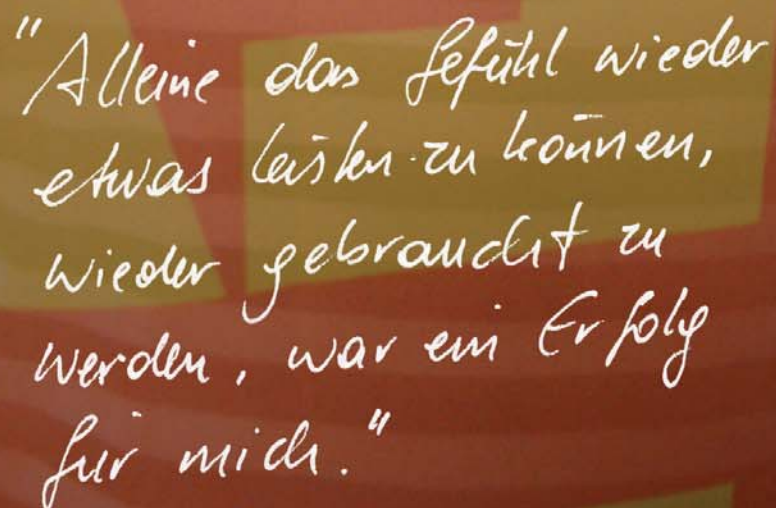 "Alleine das Gefühl wieder
etwas leisten zu können,
wieder gebraucht zu
werden, war ein Erfolg
für mich."